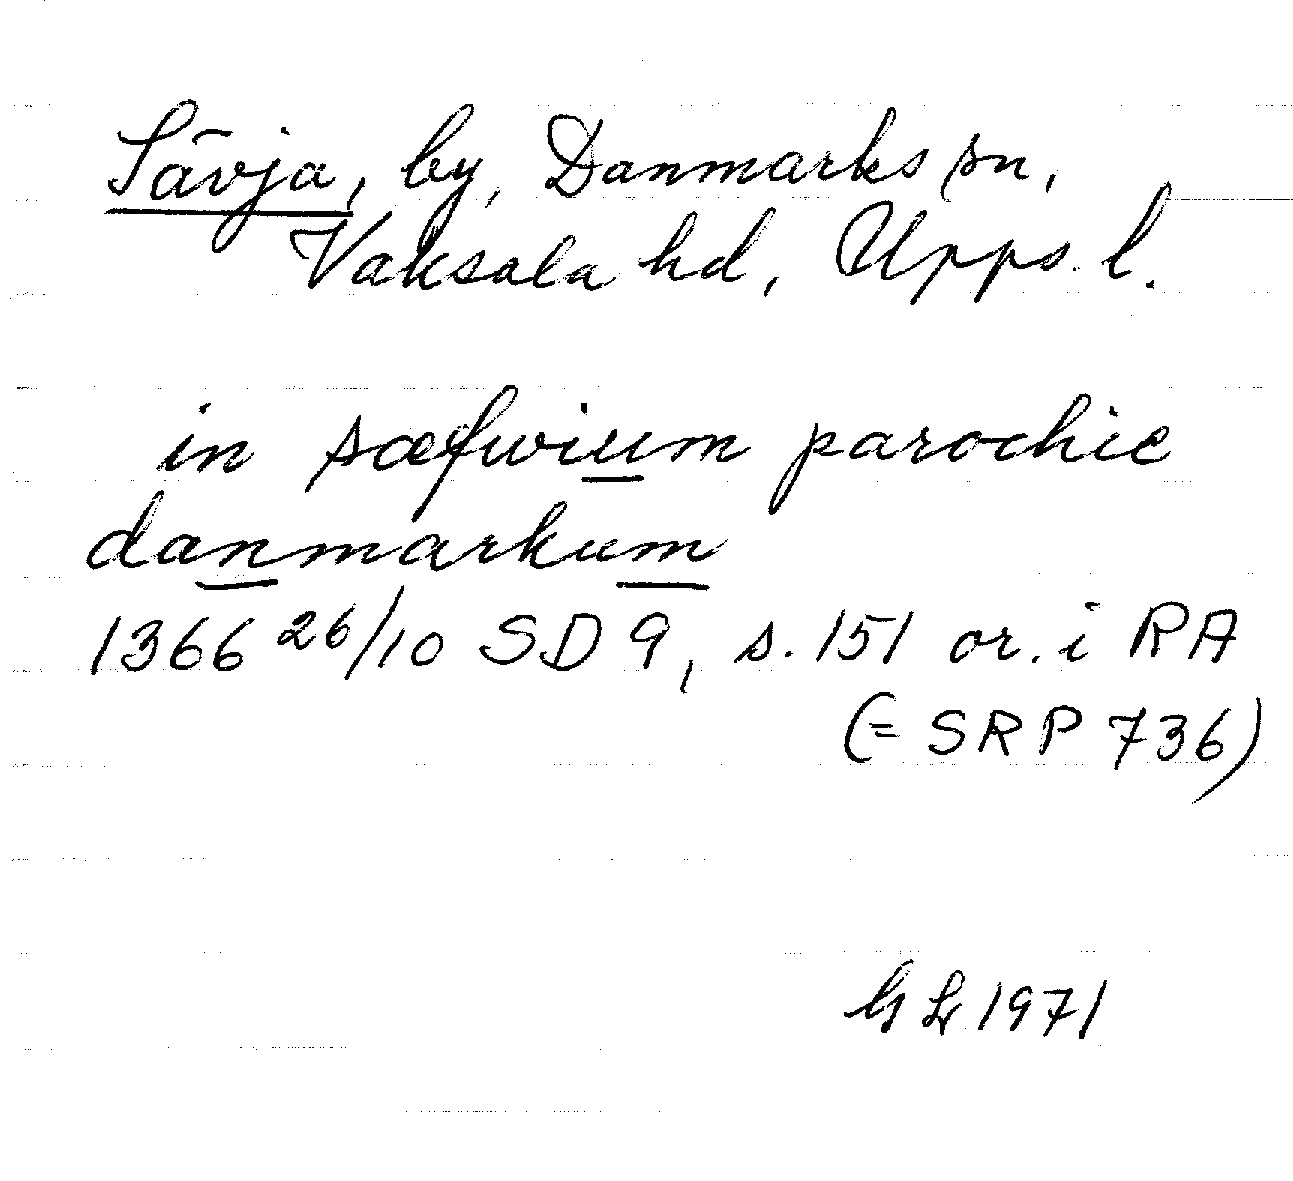 Sävja, by, Danmarks sn,
Vaksala hd, Upps. l.
in sæfwium parochie
danmarkum
1366 26/10 SD 9, s. 151 or. i RA
(= SRP 736)
GL 1971